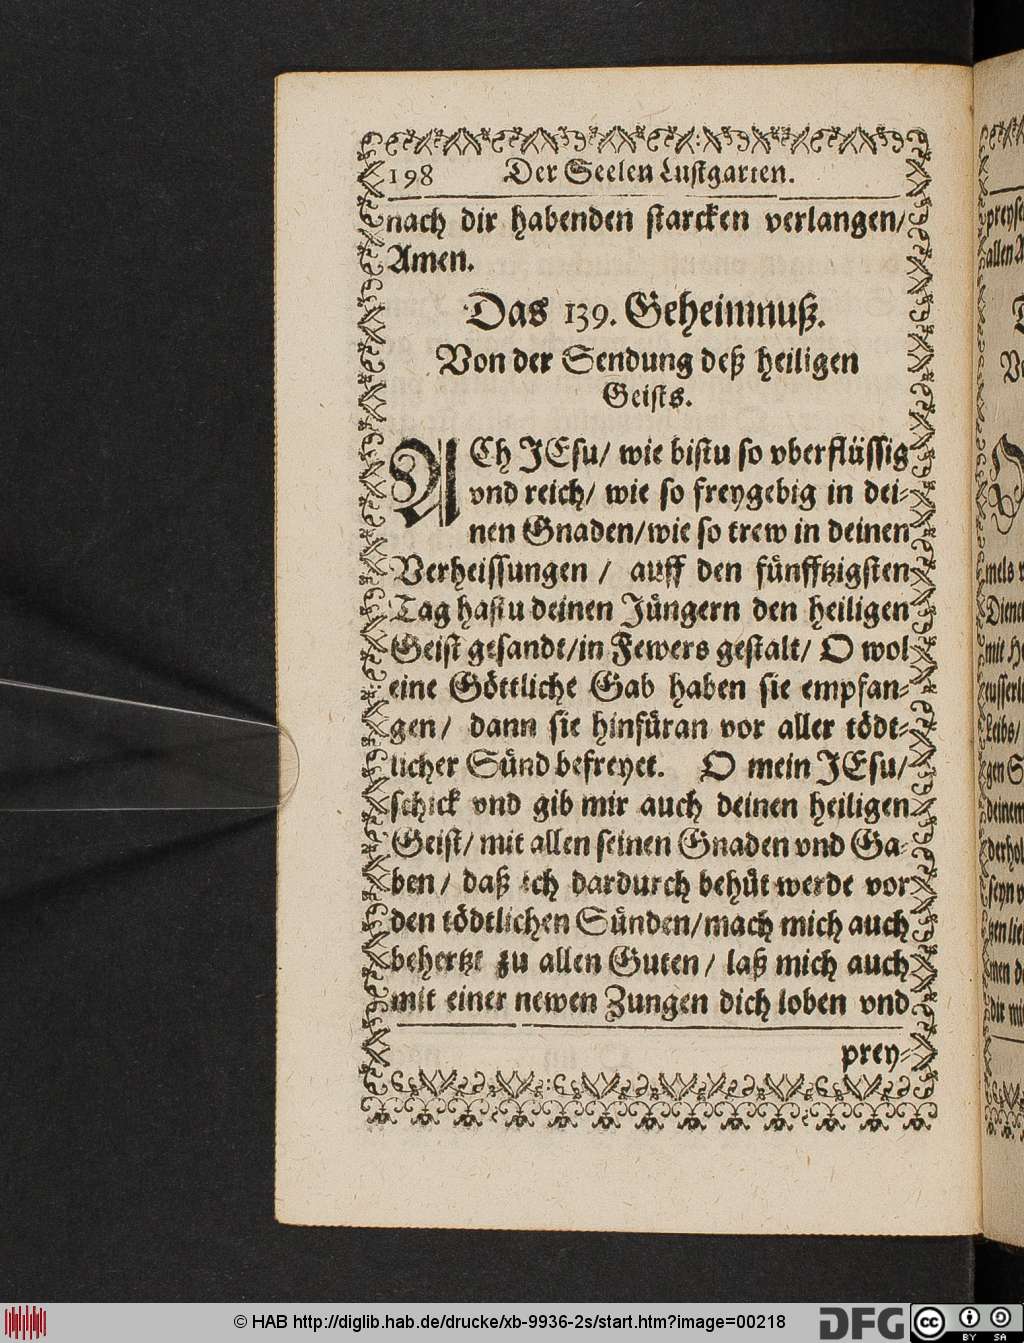 198 Der Seelen Lustgarten.
nach dir habenden starcken verlangen/
Amen.
Das 139. Geheimnuß.
Von der Sendung deß heiligen
Geists.
ACh JEsu/ wie bistu so vberflüssig
vnd reich/ wie so freygebig in dei-
nen Gnaden/wie so trew in deinen
Verheissungen / auff den fünfftzigsten
Tag hastu deinen Jüngern den heiligen
Geist gesandt/in Fewers gestalt/ O wol
eine Göttliche Gab haben sie empfan-
gen/ dann sie hinfüran vor aller tödt-
licher Sünd befreyet. O mein JEsu/
schick vnd gib mir auch deinen heiligen
Geist/ mit allen seinen Gnaden vnd Ga-
ben/ daß ich dardurch behüt werde vor
den tödtlichen Sünden/mach mich auch
behertzt zu allen Guten/ laß mich auch
mit einer newen Zungen dich loben vnd
prey-
preyse
allen A
Ve
mels
Diene
mit H
eusserl
Leibs/
gen S
deinem
derhol
seyn v
tzen lie
men de
dir mi
© HAB http://diglib.hab.de/drucke/xb-9936-2s/start.htm?image=00218
DFG
cc
BY SA